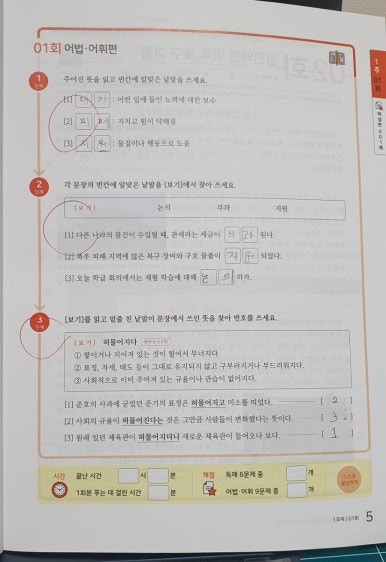 01회 어법·어휘편
1 단계 주어진 뜻을 읽고 빈칸에 알맞은 낱말을 쓰세요.
[1] 대 가 : 어떤 일에 들인 노력에 대한 보수
[2] : 지치고 힘이 약해짐
[3] 지 원 : 물질이나 행동으로 도움
2 단계 각 문장의 빈칸에 알맞은 낱말을 [보기]에서 찾아 쓰세요.
[보기] 논의 부과 지원
[1] 다른 나라의 물건이 수입될 때, 관세라는 세금이 부 과 된다.
[2] 폭우 피해 지역에 많은 복구 장비와 구호 물품이 지 원 되었다.
[3] 오늘 학급 회의에서는 체험 학습에 대해 논 의 하자.
3 단계 [보기]를 읽고 밑줄 친 낱말이 문장에서 쓰인 뜻을 찾아 번호를 쓰세요.
[보기] 허물어지다
① 쌓이거나 지어져 있는 것이 헐어서 무너지다.
② 표정, 자세, 태도 등이 그대로 유지되지 않고 구부러지거나 부드러워지다.
③ 사회적으로 이미 주어져 있는 규율이나 관습이 없어지다.
[1] 준호의 사과에 굳었던 준기의 표정은 허물어지고 미소를 띄었다. [ 2 ]
[2] 사회의 규율이 허물어진다는 것은 그만큼 사람들이 변화했다는 뜻이다. [ 3 ]
[3] 원래 있던 체육관이 허물어지더니 새로운 체육관이 들어오나 보다. [ 1 ]
시간 끝난 시간 시 분 채점 독해 6문제 중 개
1회분 푸는 데 걸린 시간 분 어법·어휘 9문제 중 개
1주차 | 01회 5
1주
01회